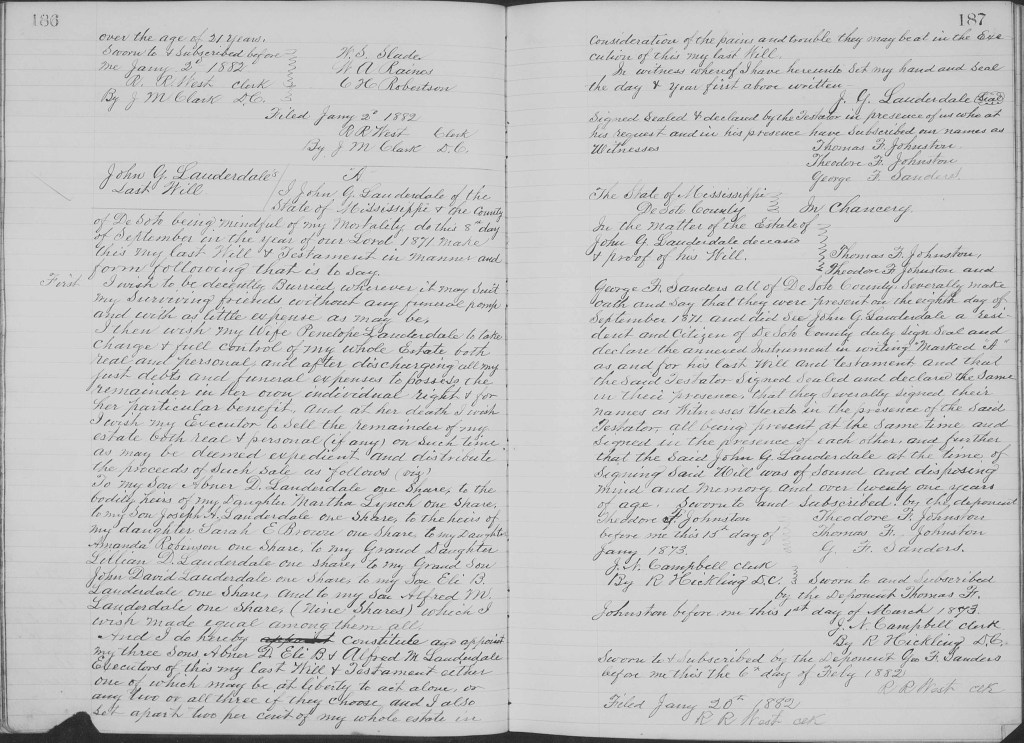 186
over the age of 21 years.
Sworn to & Subscribed before
me Jany 2d 1882
R. R West clerk
By J M Clark D.C.
W. S. Slade.
W A Raines
C H Robertson
Filed Jany 2d 1882
R R West Clerk
By J M Clark D.C.
John G. Lauderdale's
Last Will
"A"
I John G. Lauderdale of the
State of Mississippi & the County
of DeSoto being mindful of my Mortality do this 8th day
of September in the year of our Lord 1871 make
this my last Will & Testament in manner and
form following that is to say.
First I wish to be decently Burried, wherever it may Suit
my Surviving friends without any funeral pomp
and with as little expense as may be,
I then wish my Wife Penelope Lauderdale to take
Charge & full control of my whole Estate both
real and personal, and after discharging all my
just debts and funeral expenses to possess the
remainder in her own individual right & for
her particular benefit, and at her death I wish
I wish my Executor to Sell the remainder of my
estate both real & personal (if any) on Such time
as may be deemed expedient and distribute
the proceeds of Such Sale as follows (viz)
To my Son Abner D. Lauderdale one Share, to the
bodily heirs of my daughter Martha Lynch one Share,
to my Son Joseph A. Lauderdale one Share, to the heirs of
my daughter Sarah E Browne one Share to my daughter
Amanda Robinson one Share, to my Grand Daughter
Lillian D. Lauderdale one share, to my Grand Son
John David Lauderdale one Share, to my Son Eli B.
Lauderdale one Share, and to my Son Alfred M.
Lauderdale one Share, (Nine Shares) which I
wish made equal among them all,
And I do hereby appoint Constitute and appoint
my three Sons Abner D. Eli B & Alfred M Lauderdale
Executors of this my last Will & Testament either
one of which may be at liberty to act alone, or
any two or all three if they choose, and I also
Set apart two per cent of my whole estate in
187
Consideration of the pains and trouble they may be at in the Exe-
cution of this my last Will.
In witness whereof I have hereunto Set my hand and Seal
the day & Year first above written
J. G. Lauderdale Seal
Signed Sealed & declared by the Testator in presence of us who at
his request and in his presence have Subscribed our names as
Witnesses
Thomas F. Johnston.
Theodore F. Johnston
George F. Sanders.
The State of Mississippi
DeSoto County
In Chancery
In the Matter of the Estate of
John G Lauderdale deceased
& proof of his Will.
Thomas F. Johnston,
Theodore F Johnston and
George F. Sanders all of DeSoto County Severally make
oath and Say that they were present on the eighth day of
September 1871 and did See John G. Lauderdale a resi-
dent and Citizen of DeSoto County duly Sign Seal and
declare the annexed Instrument in writing Marked "A"
as and for his last Will and testament and that
the Said Testator Signed Sealed and declared the Same
in their presence, that they Severally signed their
names as Witnesses thereto in the presence of the Said
Testator, all being present at the Same time and
Signed in the presence of each other, and further
that the Said John G. Lauderdale at the time of
Signing Said Will was of Sound and disposing
mind and Memory and over twenty one years
of age. Sworn to and Subscribed by the deponent
Theodore F Johnston
before me this 15th day of
Jany 1873.
J. N. Campbell clerk
By R Hickling D.C.
Theodore F. Johnston
Thomas F. Johnston
G. F. Sanders.
Sworn to and Subscribed
by the Deponent Thomas F.
Johnston before me this 1st day of March 1873.
J. N. Campbell clerk
By R Hickling D.C.
Sworn to & Subscribed by the Deponent Geo F. Sanders
before me this the 6th day of Feby 1882
R R West clk
Filed Jany 20th 1882
R R West clk